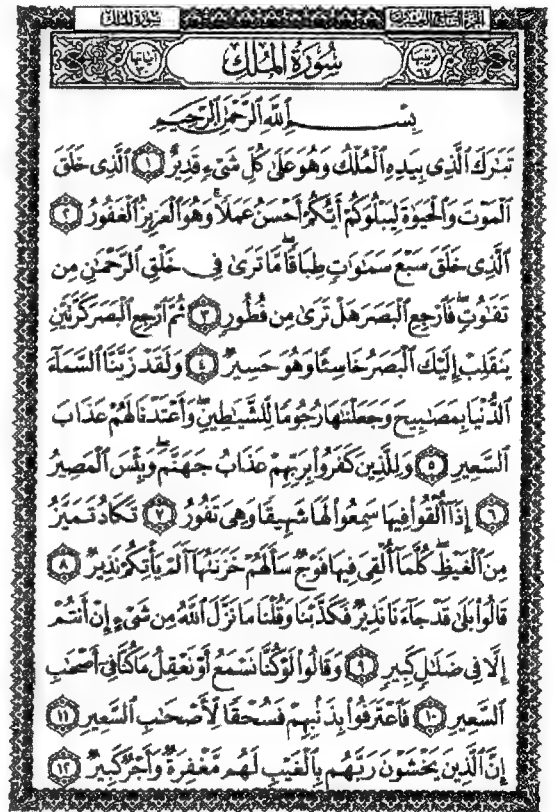 سُورَةُ المُلْكِ الجُزْءُ التَّاسِعُ وَالعِشْرُونَ
سُورَةُ المُلْكِ
بِسْمِ ٱللَّهِ ٱلرَّحْمَٰنِ ٱلرَّحِيمِ
تَبَٰرَكَ ٱلَّذِى بِيَدِهِ ٱلْمُلْكُ وَهُوَ عَلَىٰ كُلِّ شَىْءٍ قَدِيرٌ ١ ٱلَّذِى خَلَقَ
ٱلْمَوْتَ وَٱلْحَيَوٰةَ لِيَبْلُوَكُمْ أَيُّكُمْ أَحْسَنُ عَمَلًا ۚ وَهُوَ ٱلْعَزِيزُ ٱلْغَفُورُ ٢
ٱلَّذِى خَلَقَ سَبْعَ سَمَٰوَٰتٍ طِبَاقًا ۖ مَّا تَرَىٰ فِى خَلْقِ ٱلرَّحْمَٰنِ مِن
تَفَٰوُتٍ ۖ فَٱرْجِعِ ٱلْبَصَرَ هَلْ تَرَىٰ مِن فُطُورٍ ٣ ثُمَّ ٱرْجِعِ ٱلْبَصَرَ كَرَّتَيْنِ
يَنقَلِبْ إِلَيْكَ ٱلْبَصَرُ خَاسِئًا وَهُوَ حَسِيرٌ ٤ وَلَقَدْ زَيَّنَّا ٱلسَّمَآءَ
ٱلدُّنْيَا بِمَصَٰبِيحَ وَجَعَلْنَٰهَا رُجُومًا لِّلشَّيَٰطِينِ ۖ وَأَعْتَدْنَا لَهُمْ عَذَابَ
ٱلسَّعِيرِ ٥ وَلِلَّذِينَ كَفَرُوا۟ بِرَبِّهِمْ عَذَابُ جَهَنَّمَ ۖ وَبِئْسَ ٱلْمَصِيرُ
٦ إِذَآ أُلْقُوا۟ فِيهَا سَمِعُوا۟ لَهَا شَهِيقًا وَهِىَ تَفُورُ ٧ تَكَادُ تَمَيَّزُ
مِنَ ٱلْغَيْظِ ۖ كُلَّمَآ أُلْقِىَ فِيهَا فَوْجٌ سَأَلَهُمْ خَزَنَتُهَآ أَلَمْ يَأْتِكُمْ نَذِيرٌ ٨
قَالُوا۟ بَلَىٰ قَدْ جَآءَنَا نَذِيرٌ فَكَذَّبْنَا وَقُلْنَا مَا نَزَّلَ ٱللَّهُ مِن شَىْءٍ إِنْ أَنتُمْ
إِلَّا فِى ضَلَٰلٍ كَبِيرٍ ٩ وَقَالُوا۟ لَوْ كُنَّا نَسْمَعُ أَوْ نَعْقِلُ مَا كُنَّا فِىٓ أَصْحَٰبِ
ٱلسَّعِيرِ ١٠ فَٱعْتَرَفُوا۟ بِذَنۢبِهِمْ فَسُحْقًا لِّأَصْحَٰبِ ٱلسَّعِيرِ ١١
إِنَّ ٱلَّذِينَ يَخْشَوْنَ رَبَّهُم بِٱلْغَيْبِ لَهُم مَّغْفِرَةٌ وَأَجْرٌ كَبِيرٌ ١٢